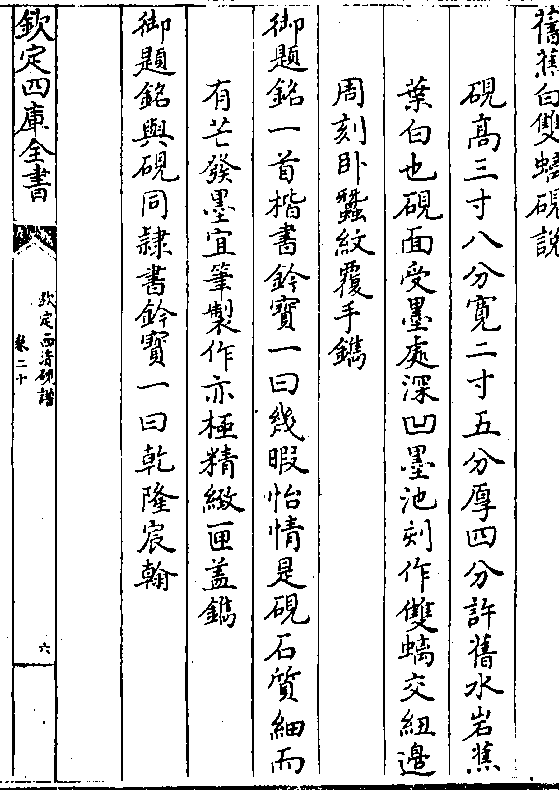 舊蕉白雙螭硯說
硯高三寸八分寬二寸五分厚四分許舊水岩蕉
葉白也硯面受墨處深凹墨池刻作雙螭交紐邊
周刻卧蠶紋覆手鐫
御題銘一首楷書鈐寶一曰幾暇怡情是硯石質細而
有芒發墨宜筆製作亦極精緻匣蓋鐫
御題銘與硯同隷書鈐寶一曰乾隆宸翰
欽定四庫全書
欽定西清硯譜
卷二十
六